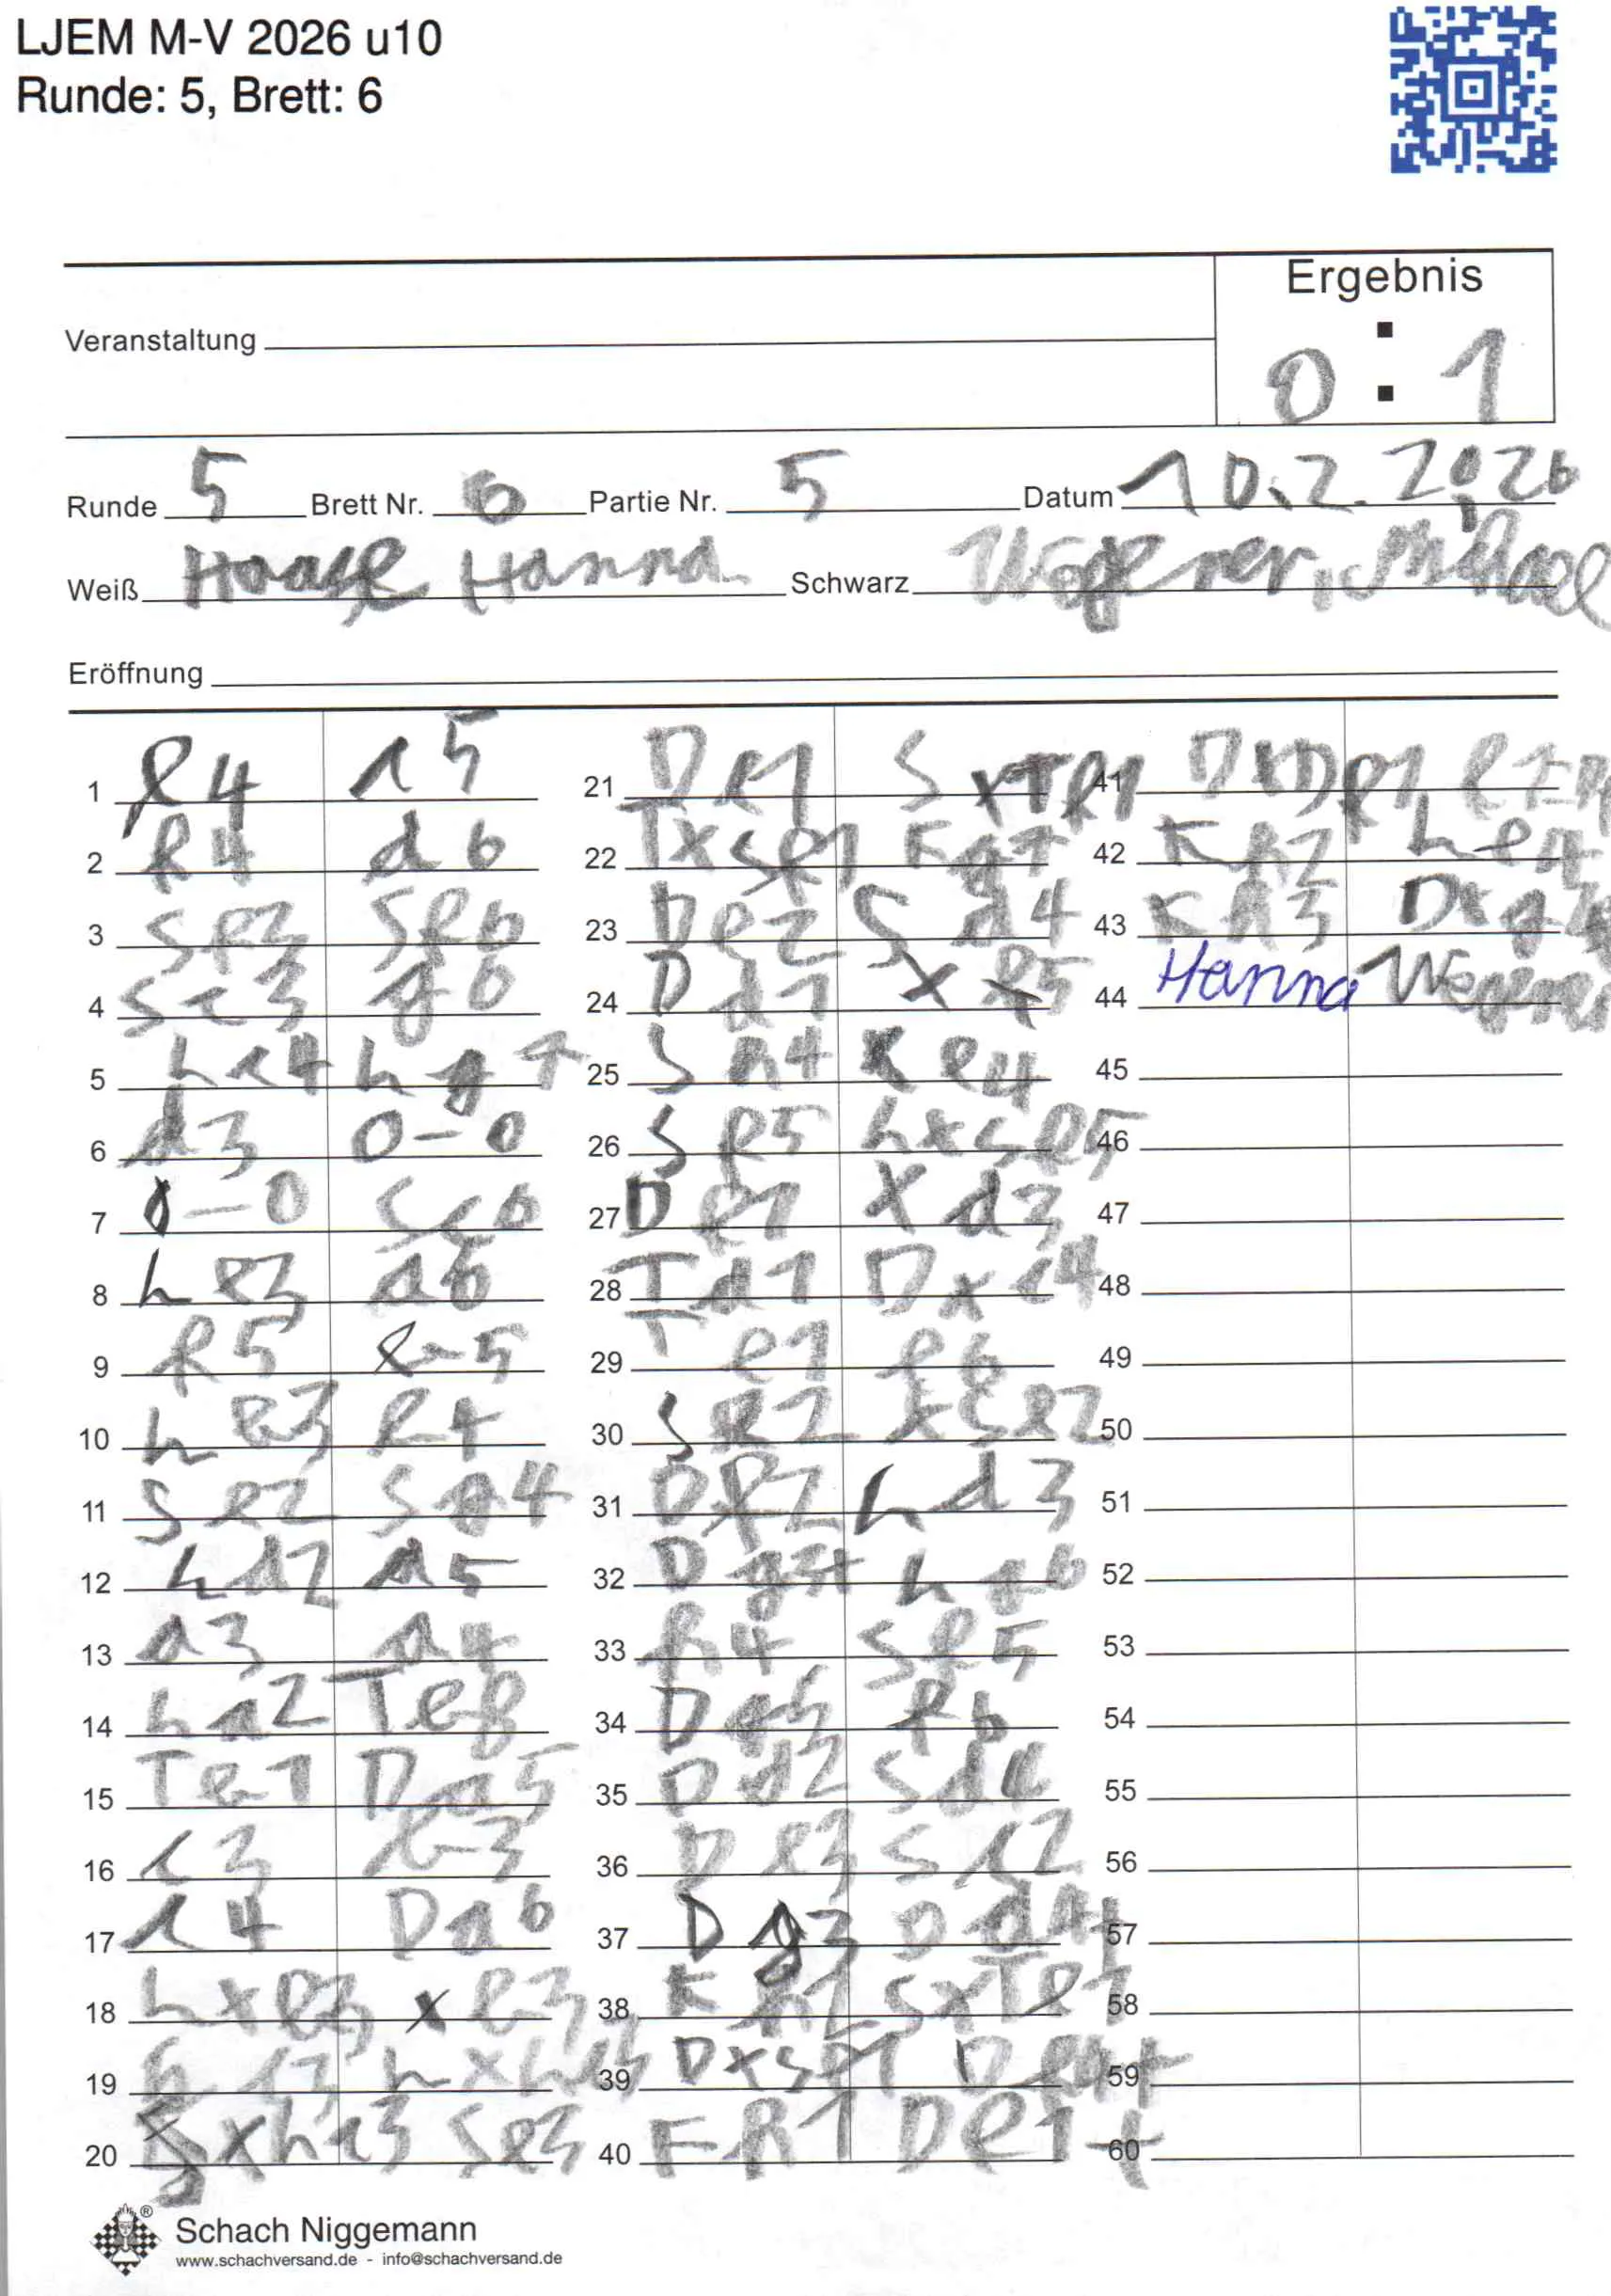 LJEM M-V 2026 u10
Runde: 5, Brett: 6
Ergebnis
Veranstaltung
0 : 1
Runde 5 Brett Nr. 6 Partie Nr. 5 Datum 10.2.2026
Weiß Haase Hanna Schwarz Wegener, Michael
Eröffnung
1 e4 c5
2 f4 d6
3 Sf3 Sf6
4 Sc3 g6
5 Lc4 Lg7
6 d3 0-0
7 0-0 Sc6
8 Le3 a6
9 f5 e5
10 Le3 e4
11 Se2 Sg4
12 Ld2 a5
13 a3 a4
14 La2 Te8
15 Te1 Da5
16 c3 e3
17 c4 Da6
18 Lxe3 xe3
19 Lxh
20 Sxhc3 Se3
21 De1 SxTf1
22 TxSf1 Kg7
23 De2 Sd4
24 Dd1 xf5
25 Sh4 Xe4
26 Sf5 LxSf5
27 De1 Xd3
28 Td1 Dxc4
29 Te1 f6
30 Se2 xSe2
31 Df2 Ld3
32 Dg3+ Lg6
33 h4 Sf5
34 f6
35 Dd2 Sd4
36 De3 Sc2
37 Dg3 Dd4+
38 Kh2 SxTe1
39 DxSe1 De4+
40 Kh1 De1+
41 DxDe1
42 Kh2 Le4
43 Kh3 Dxg
44 Hanna Wegener
45
46
47
48
49
50
51
52
53
54
55
56
57
58
59
60
Schach Niggemann ®
www.schachversand.de - info@schachversand.de